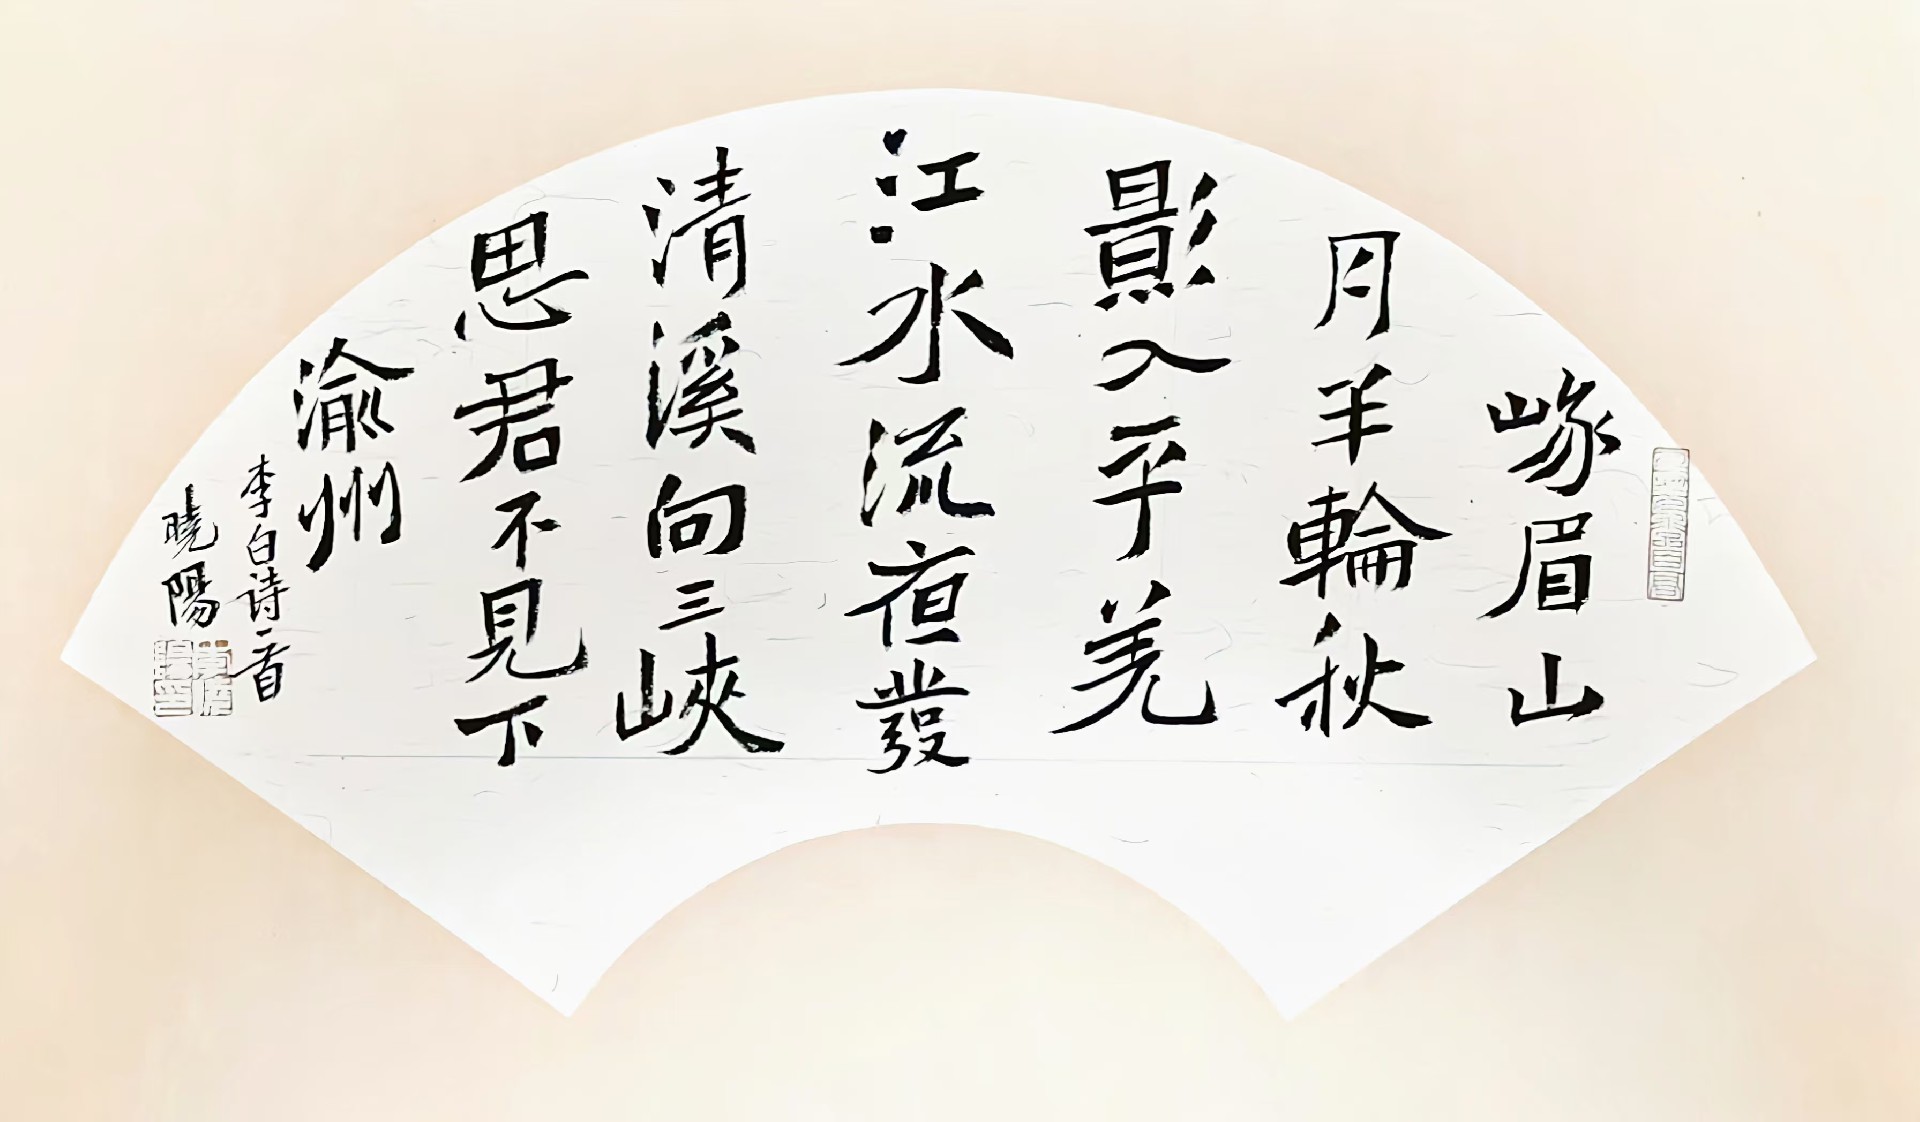 峨眉山
月半輪秋
影入平羌
江水流夜發
清溪向三峽
思君不見下
渝州
李白诗一首
曉陽